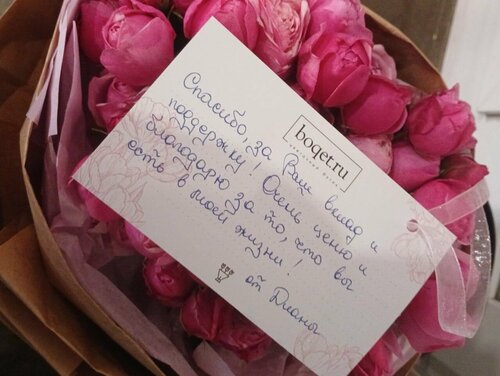 boqet.ru
Спасибо, за Ваш вклад и
поддержку! Очень ценю и
благодарю за то, что вы
есть в моей жизни!
от Дианы